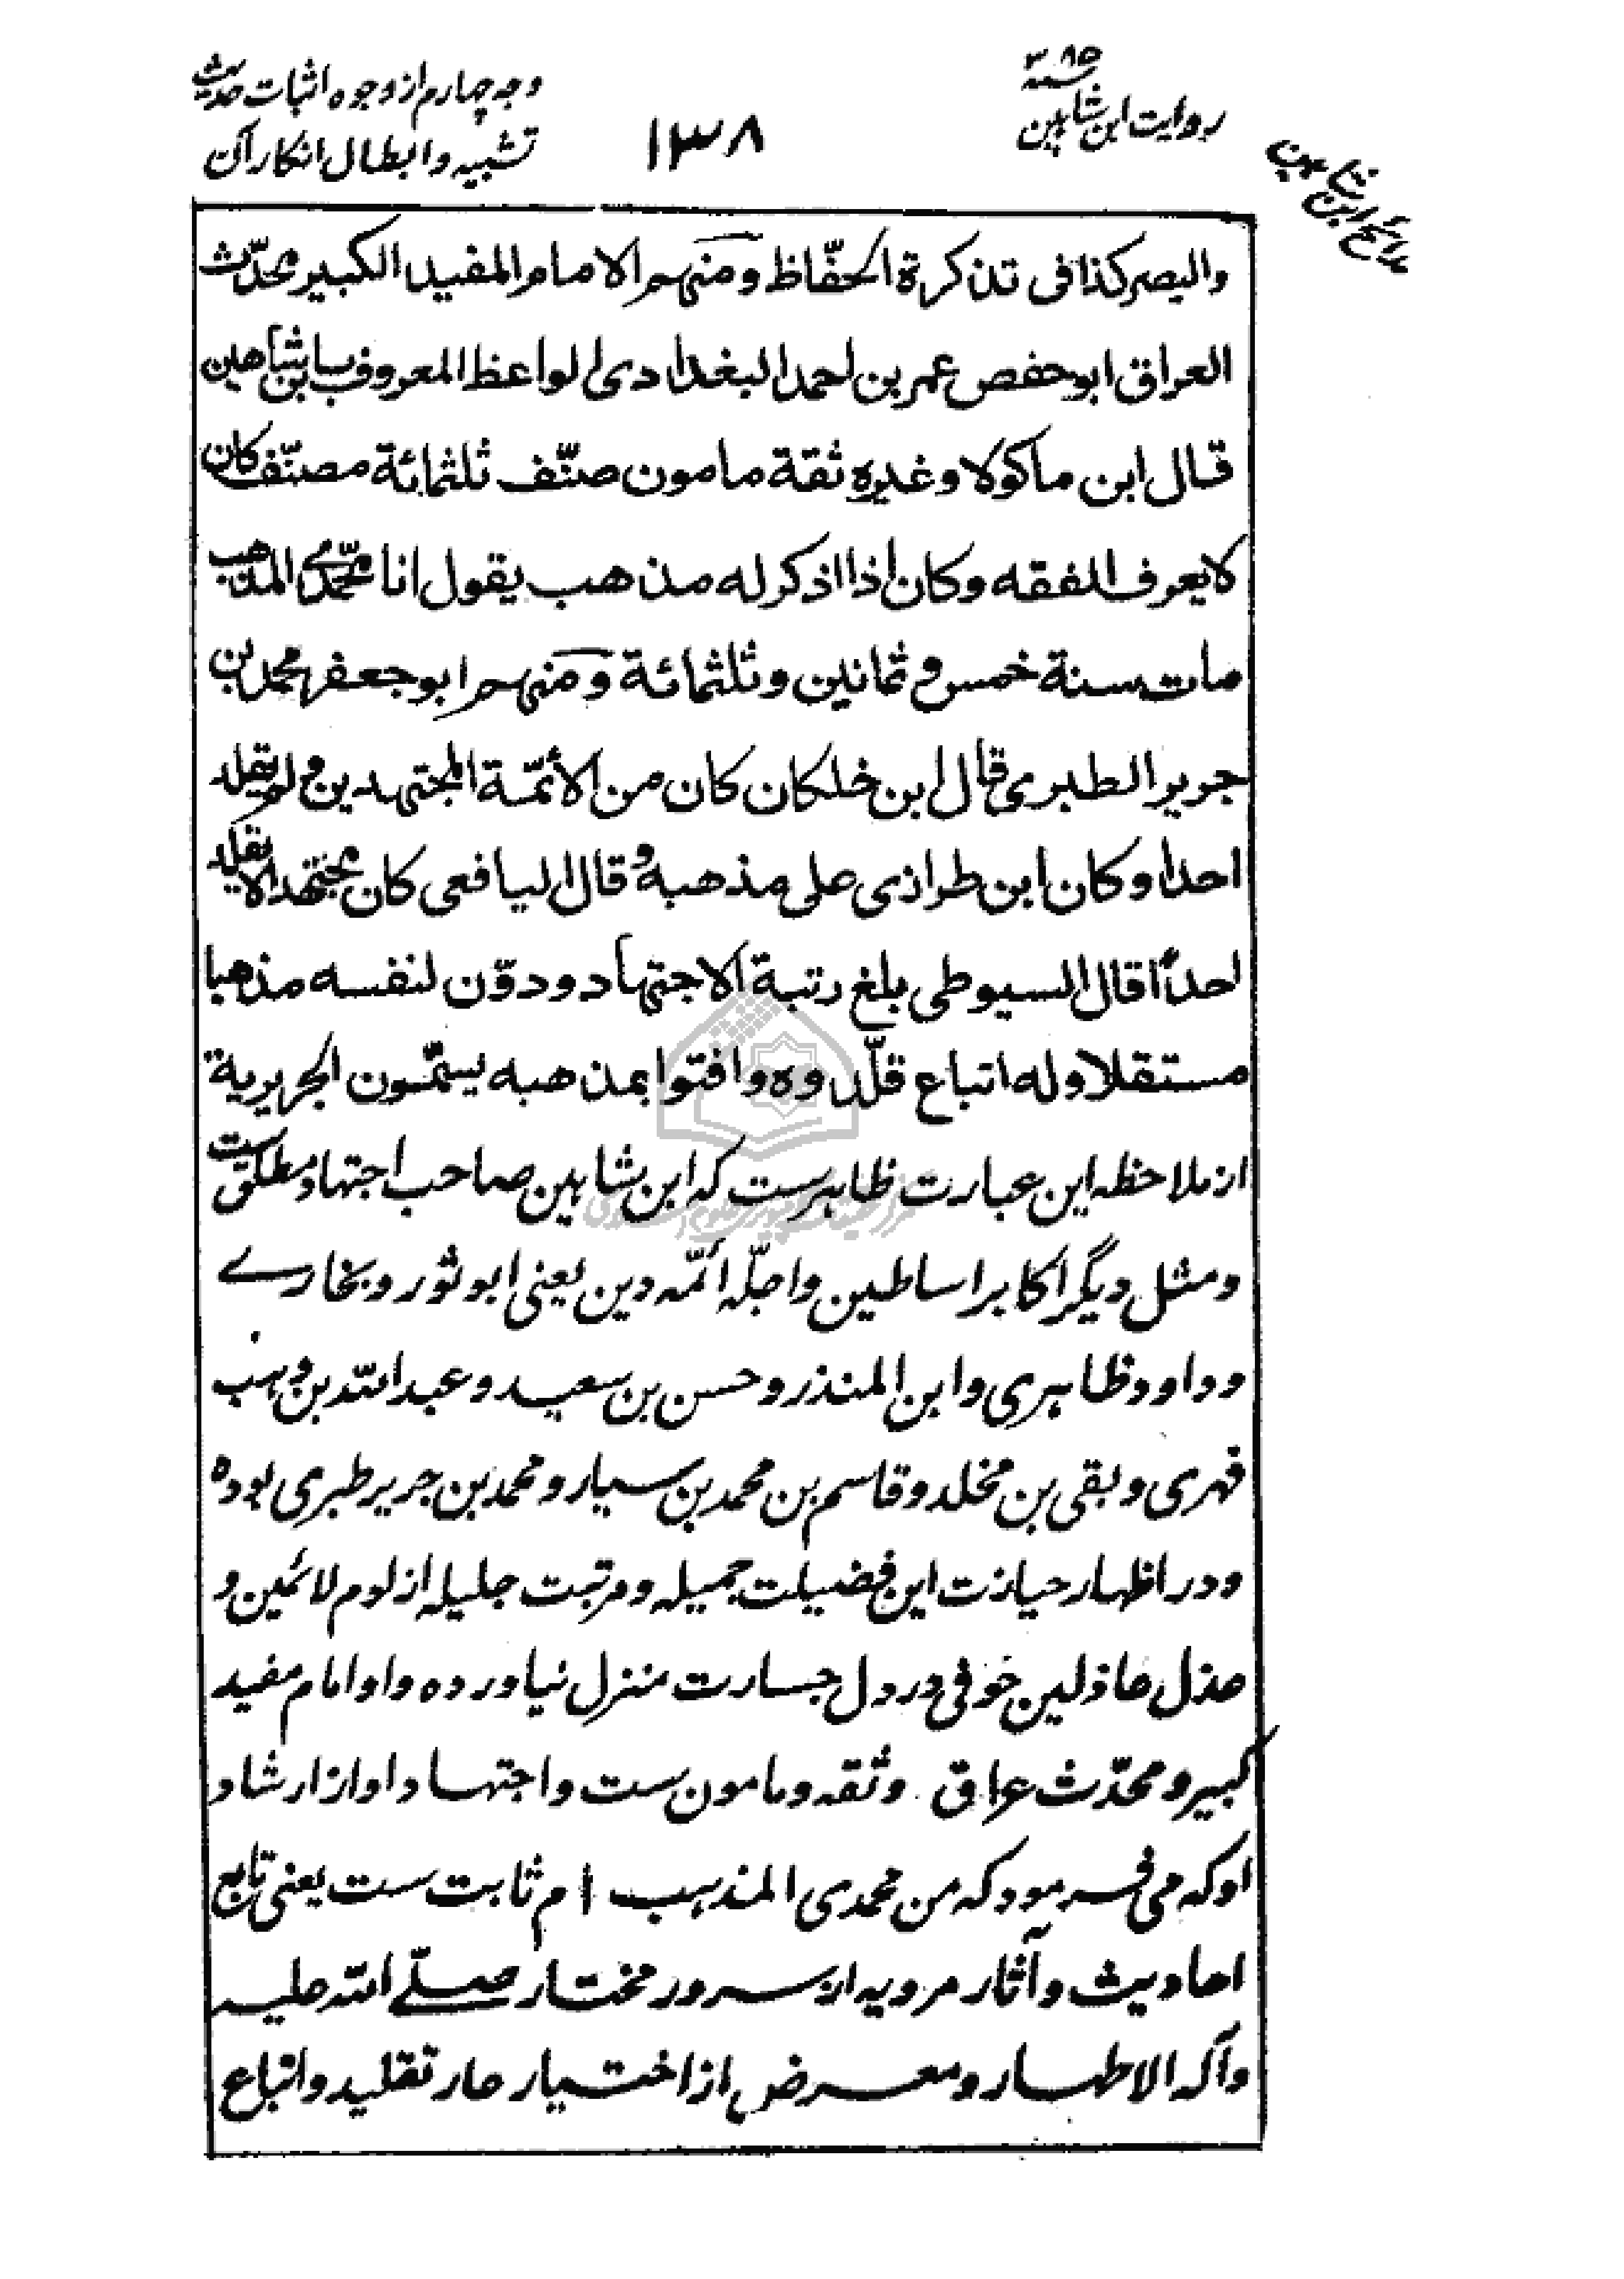 سنه ٣٨٥
روایت ابن شاهین
١٣٨
وجه چهارم از وجوه اثبات حدیث
تشبیه و ابطال انکار آن
مدائح ابن شاهین
والبصر کذا فی تذکرة الحفّاظ ومنهم الامام المفید الکبیر محدّث
العراق ابو حفص عمر بن احمد البغدادی الواعظ المعروف بابن شاهین
قال ابن ماکولا وغیره ثقة مامون صنّف ثلثمائة مصنّف کان
لا یعرف الفقه وکان اذا اذکر له مذهب یقول انا محمّدی المذهب
مات سنة خمس و ثمانین وثلثمائة ومنهم ابو جعفر محمد بن
جریر الطبری قال ابن خلکان کان من الأئمّة المجتهدین و لم یقلد
احدا وکان ابن طرازی علی مذهبه و قال الیافعی کان مجتهدا لا یقلد
احدًا قال السیوطی بلغ رتبة الاجتهاد ودوّن لنفسه مذهبا
مستقلا وله اتباع قلّدوه وافتوا بمذهبه یسمّون الجریریة
از ملاحظه این عبارت ظاهرست که ابن شاهین صاحب اجتهاد مطلق ست
ومثل دیگر اکابر اساطین واجلّه ائمّه دین یعنی ابو ثور وبخارے
وداود ظاهری وابن المنذر وحسن بن سعید وعبد الله بن وهب
فهری وبقی بن مخلد وقاسم بن محمد بن سیار ومحمد بن جریر طبری بوده
ودر اظهار حیازت این فضیلت جمیله ومرتبت جلیله از لوم لائمین و
عذل عاذلین خوفی در دل جسارت منزل نیاورده واو امام مفید
کبیر ومحدّث عراق وثقه ومامون ست واجتهاد او از ارشاد
او که می فرمود که من محمدی المذهب ام ثابت ست یعنی تابع
احادیث وآثار مرویه از سرور مختار صلّے الله علیه
وآله الاطهار ومعرض از اختیار عار تقلید واتباع